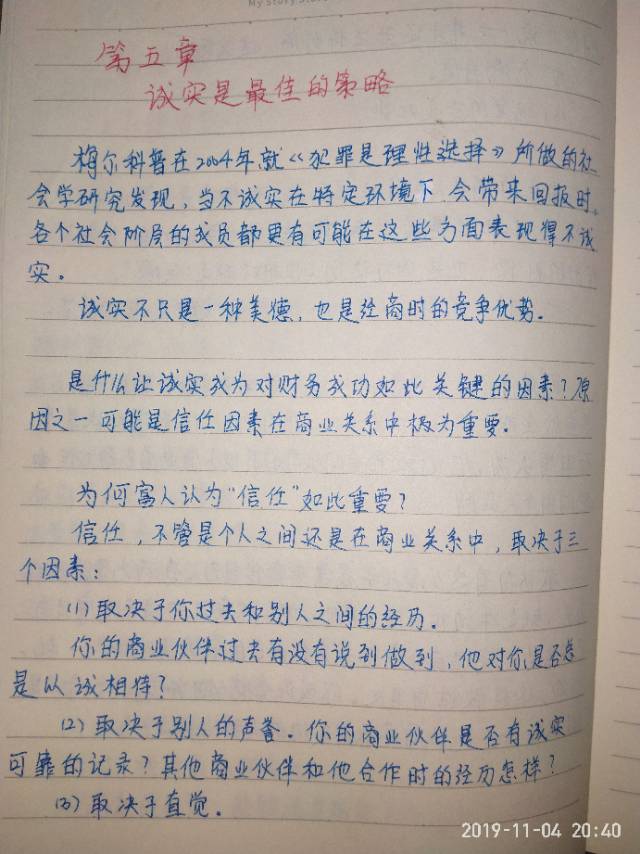 第五章
诚实是最佳的策略
梅尔科普在2004年就《犯罪是理性选择》所做的社
会学研究发现，当不诚实在特定环境下会带来回报时，
各个社会阶层的成员都更有可能在这些方面表现得不诚
实。
诚实不只是一种美德，也是经商时的竞争优势。
是什么让诚实成为对财务成功如此关键的因素？原
因之一可能是信任因素在商业关系中极为重要。
为何富人认为“信任”如此重要？
信任，不管是个人之间还是在商业关系中，取决于三
个因素：
(1) 取决于你过去和别人之间的经历。
你的商业伙伴过去有没有说到做到，他对你是否总
是以诚相待？
(2) 取决于别人的声誉。你的商业伙伴是否有诚实
可靠的记录？其他商业伙伴和他合作时的经历怎样？
(3) 取决于直觉。
2019-11-04 20:40